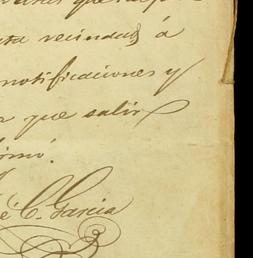 que
vecindad á
notificaciones y
que salir
firmó.
é C. Garcia